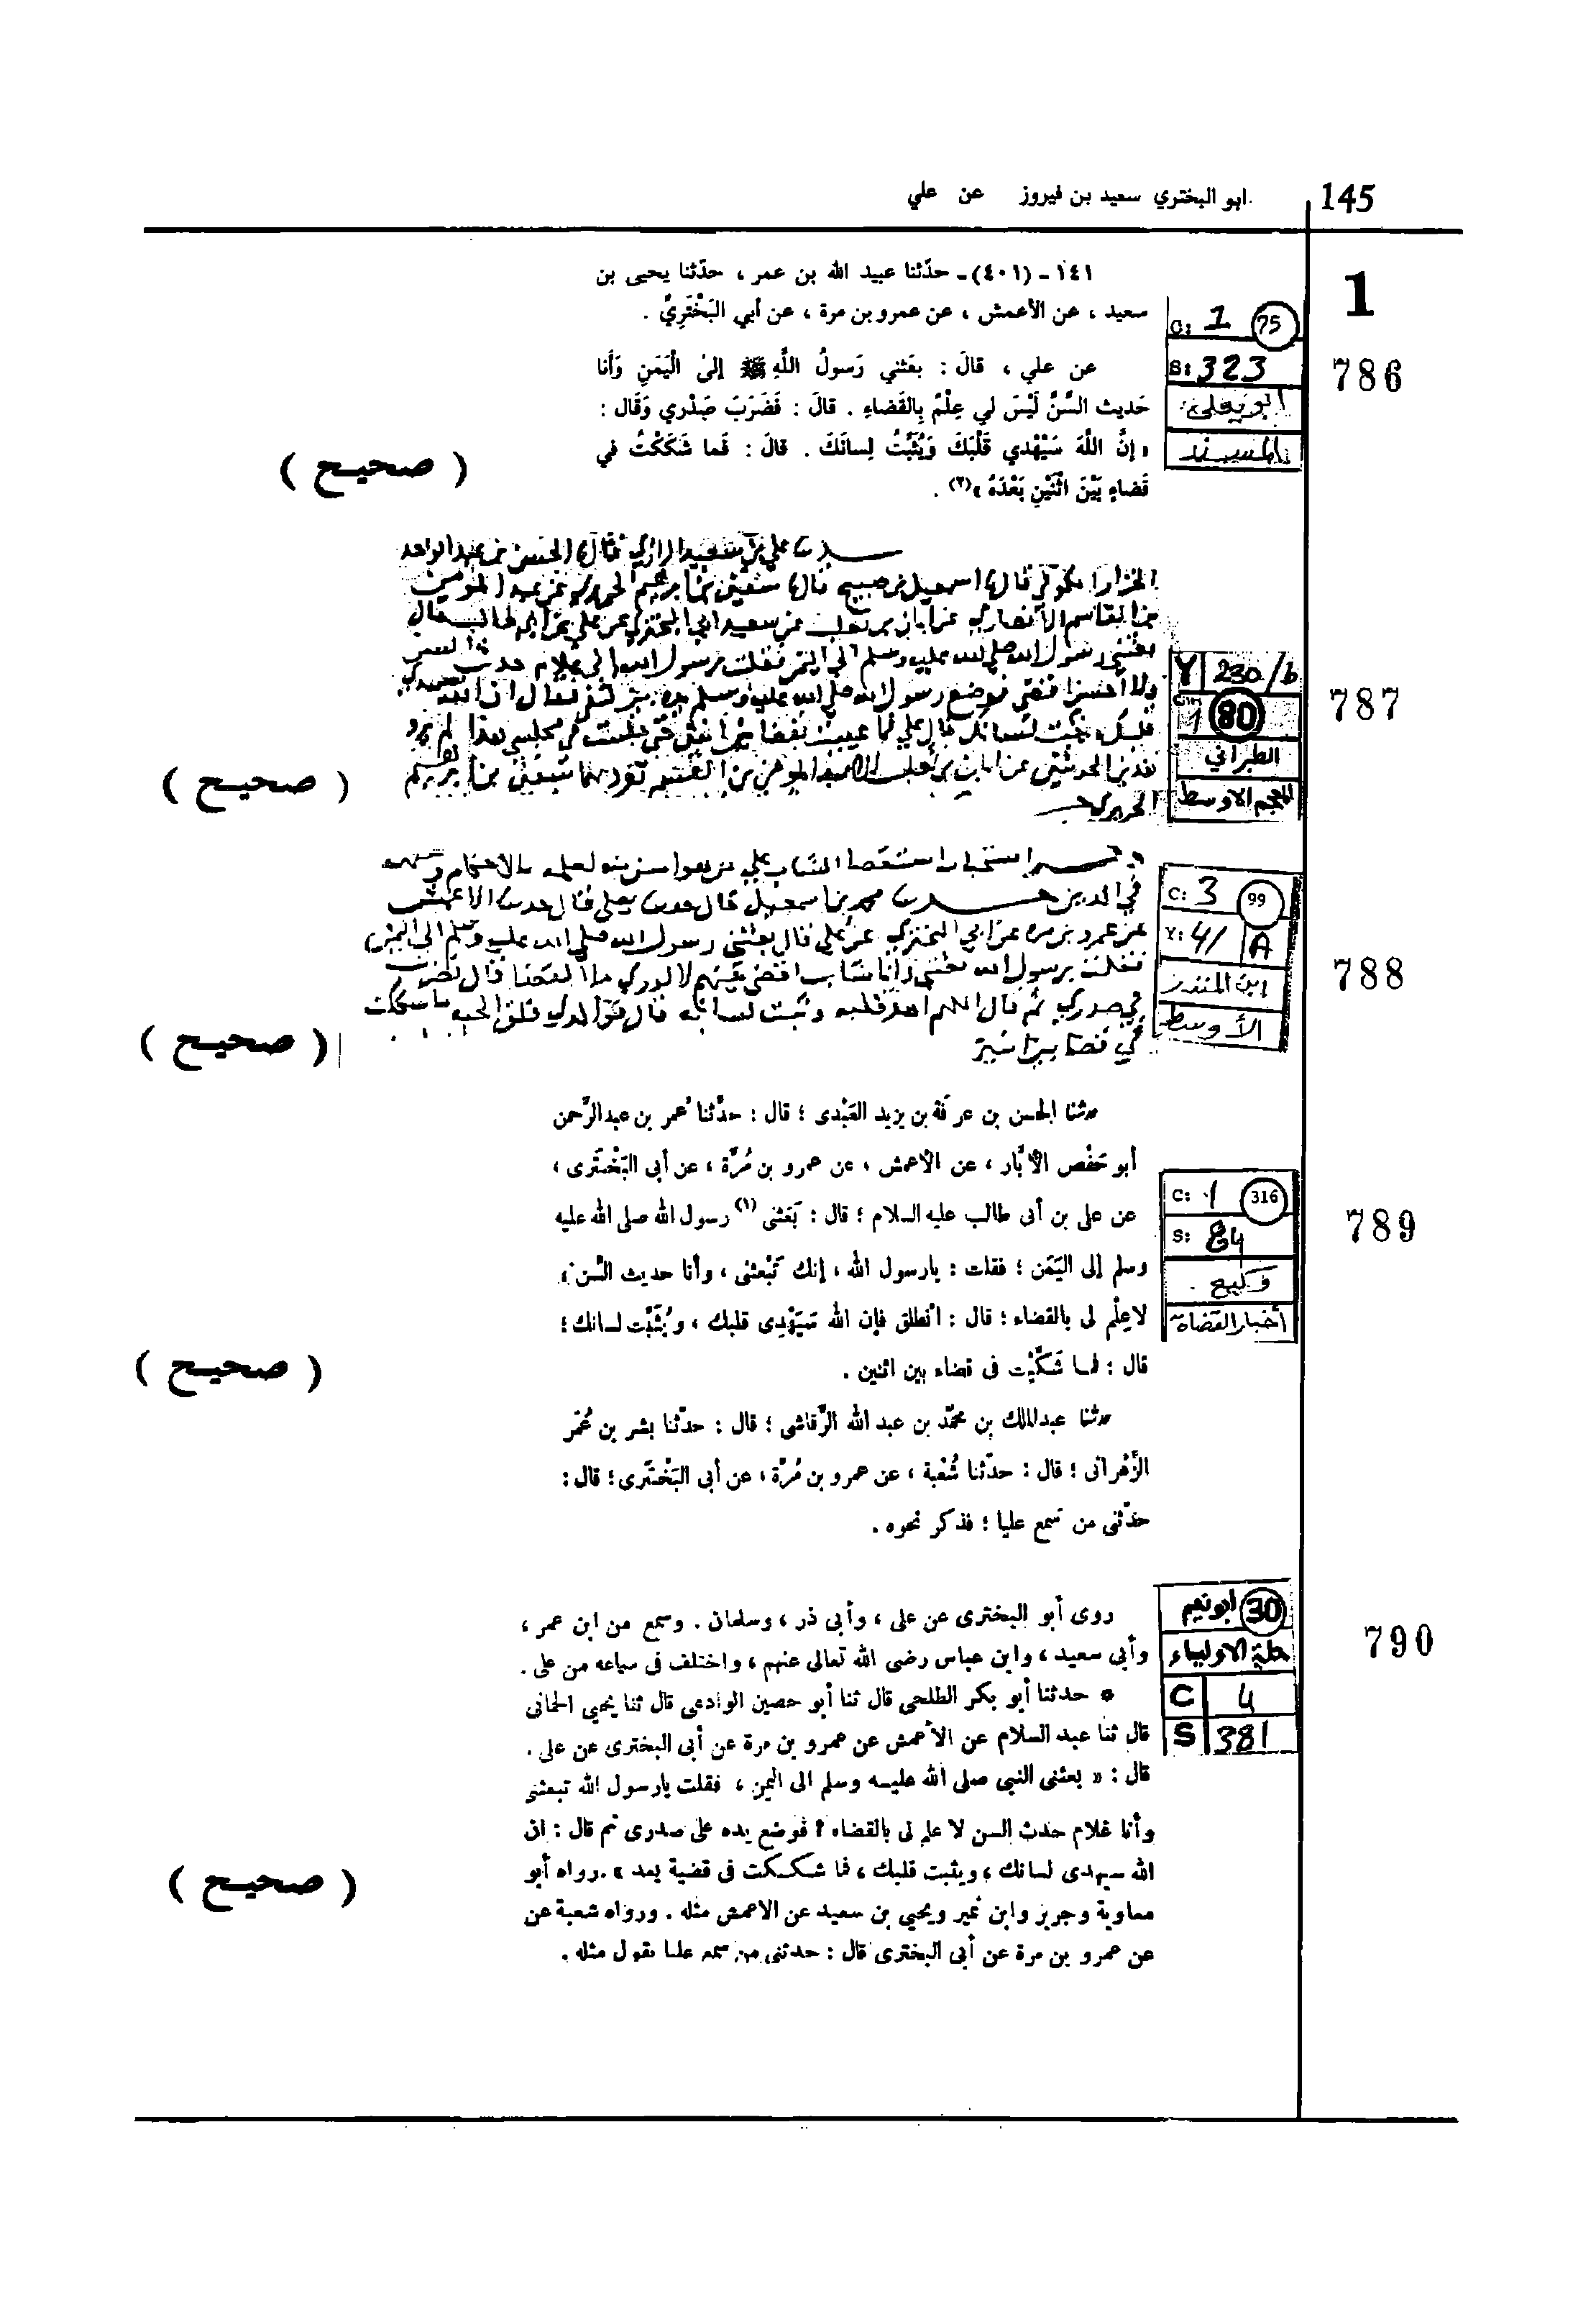 145
ابو البختري سعيد بن فيروز عن علي
1
786
C: 1 75
S: 323
ابو يعلى
المسند
١٤١ - (٤٠١) - حدّثنا عبيد الله بن عمر ، حدّثنا يحيى بن
سعيد ، عن الأعمش ، عن عمرو بن مرة ، عن أبي البَخْتَرِيِّ .
عن علي ، قالَ : بعَثني رَسولُ اللَّهِ ﷺ إلىٰ الْيَمَنِ وَأَنا
حَديث السِّنِّ لَيْسَ لي عِلْمٌ بِالقَضاءِ . قالَ : فَضَرَبَ صَدْري وَقَال :
« إنَّ اللَّهَ سَيَهْدي قَلْبَكَ وَيُثَبِّتُ لِسانَكَ . قالَ : فَما شَكَكْتُ في
قَضاءٍ بَيْنَ اثْنَيْنِ بَعْدَهُ »(٢) .
( صحيح )
787
Y 230/b
80
الطبراني
المعجم الاوسط
علي بن سعيد الرازي قال الحسن بن عبد الواحد
الخزار الكوفي قال اسمعيل بن صبيح قال سفيان بن ابرهيم الحريري عن عبد المومن
بن القاسم الانصاري عن ابان بن تغلب عن سعيد ابي البختري عن علي بن ابي طالب قال
بعثني رسول الله صلى الله عليه وسلم الى اليمن فقلت يرسول الله اني غلام حدث
الحريري
( صحيح )
788
C: 3 99
Y: 41 A
ابن المنذر
الأوسط
في الدين محمد بن اسمعيل قال حدثنا يعلى قال حدثنا الاعمش
عن عمرو بن مره عن ابي البختري عن علي قال بعثني رسول الله صلى الله عليه وسلم الى اليمن
فقلت يرسول الله تبعثني وانا شاب اقضي بينهم لا ادري ما القضا قال فضرب
في صدري ثم قال اللهم اهد قلبه وثبت لسانه قال فوالذي فلق الحبه ما شككت
في قضا بين اثنين
( صحيح )
789
C: 1 316
S: 84
وكيع
أخبار القضاة
حدثنا الحسن بن عرفة بن يزيد العَبْدى ؛ قال : حدّثنا عمر بن عبدالرَّحمن
أبو حَفْص الأبَّار ، عن الأعمش ، عن عمرو بن مُرَّة ، عن أبى البَخْتَرى ،
عن على بن أبى طالب عليه السلام ؛ قال : بَعَثنى(١) رسول الله صلى الله عليه
وسلم إلى اليَمَن ؛ فقلت : يارسول الله ، إنك تَبْعثنى ، وأنا حديث السِّن ؛
لاعِلْم لى بالقضاء ؛ قال : انْطلق فإن الله سَيَهْدِى قلبك ، ويُثَبِّت لسانك ؛
قال : فما شَكَّيْت فى قضاء بين اثنين .
( صحيح )
حدثنا عبدالملك بن محمّد بن عبد الله الرَّقاشى ؛ قال : حدّثنا بشر بن عُمَر
الزَّهْرانى ؛ قال : حدّثنا شُعْبة ، عن عمرو بن مُرَّة ، عن أبى البَخْتَرى ؛ قال :
حدّثنى من سَمع عليا ؛ فذكر نحوه .
790
30 ابو نعيم
حلية الاولياء
C 4
S 381
روى أبو البخترى عن على ، وأبى ذر ، وسلمان . وسمع من ابن عمر ،
وأبى سعيد ، وابن عباس رضى الله تعالى عنهم ، واختلف فى سماعه من على .
* حدثنا أبو بكر الطلحى قال ثنا أبو حصين الوادعى قال ثنا يحيى الحمانى
قال ثنا عبد السلام عن الأعمش عن عمرو بن مرة عن أبى البخترى عن على .
قال : « بعثنى النبي صلى الله عليه وسلم الى اليمن ، فقلت يارسول الله تبعثنى
وأنا غلام حدث السن لا علم لى بالقضاء ؟ فوضع يده على صدرى ثم قال : ان
الله سيهدى لسانك ، ويثبت قلبك ، فما شككت فى قضية بعد » . رواه أبو
معاوية وجرير وابن نمير ويحيى بن سعيد عن الاعمش مثله . ورواه شعبة عن
عن عمرو بن مرة عن أبى البخترى قال : حدثنى من سمع عليا يقول مثله .
( صحيح )